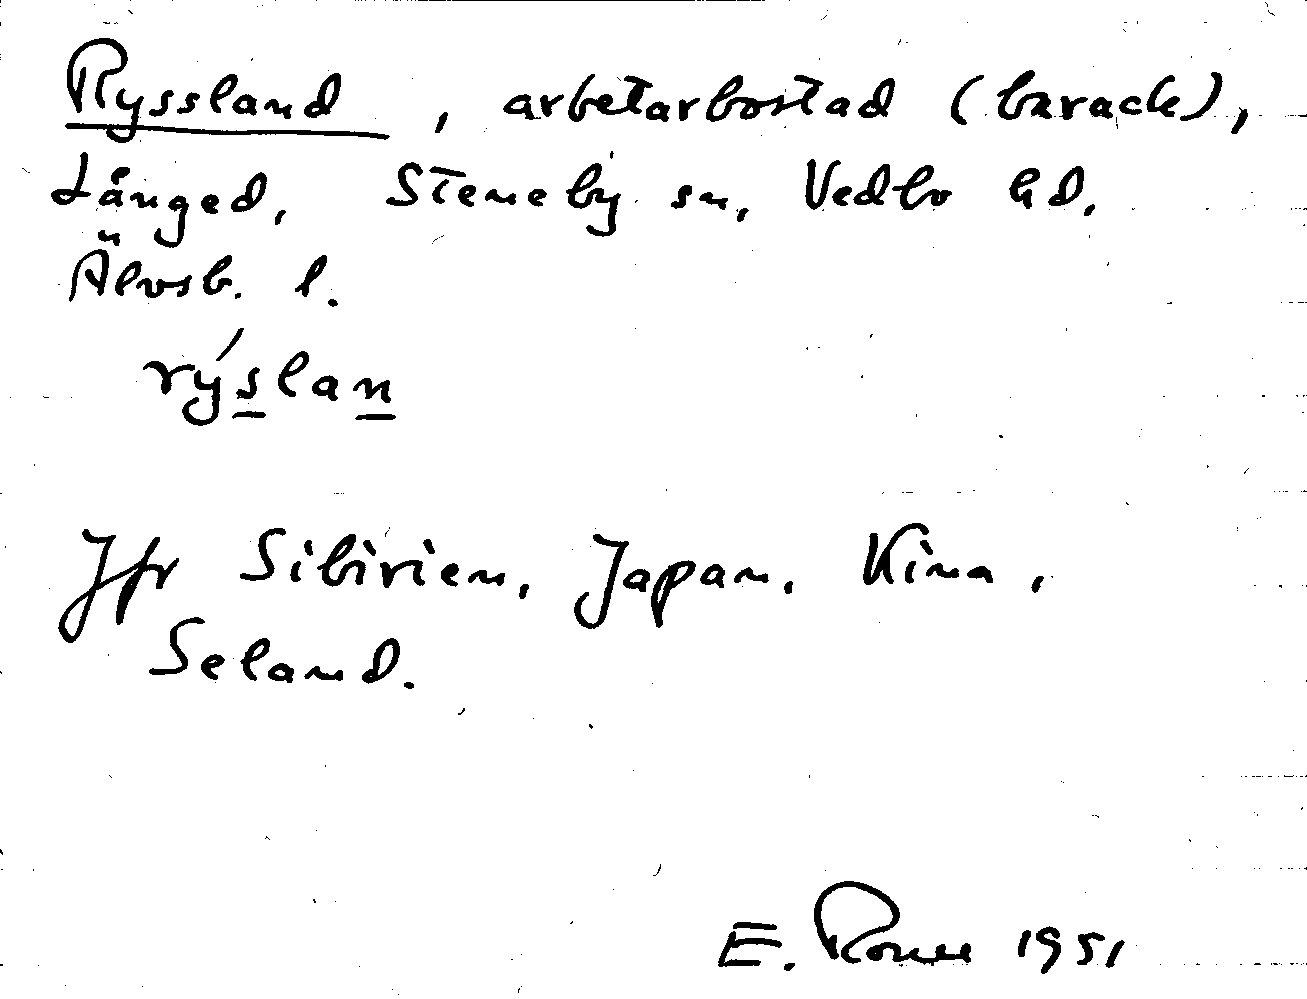 Ryssland, arbetarbostad (barack),
Långed, Steneby sn, Vedbo hd,
Älvsb. l.
rýslan
Jfr Sibirien, Japan, Kina,
Seland.
E. 1951